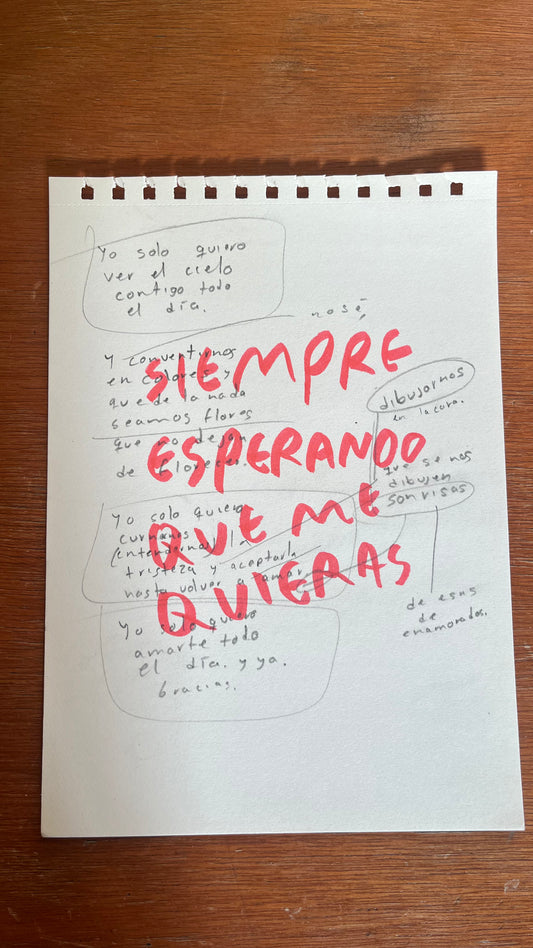 Yo solo quiero
ver el cielo
contigo todo
el día.
no sé,
Y convertirnos
en colores y
que de la nada
seamos flores
que no dejan
de florecer.
SIEMPRE
ESPERANDO
QUE ME
QUIERAS
dibujarnos
en la cara.
que se nos
dibujen
sonrisas
de esas
de
enamorados.
Yo solo quiero
curarnos
(entendernos) la
tristeza y aceptarla
hasta volver a amar
Yo solo quiero
amarte todo
el día. y ya.
Gracias.